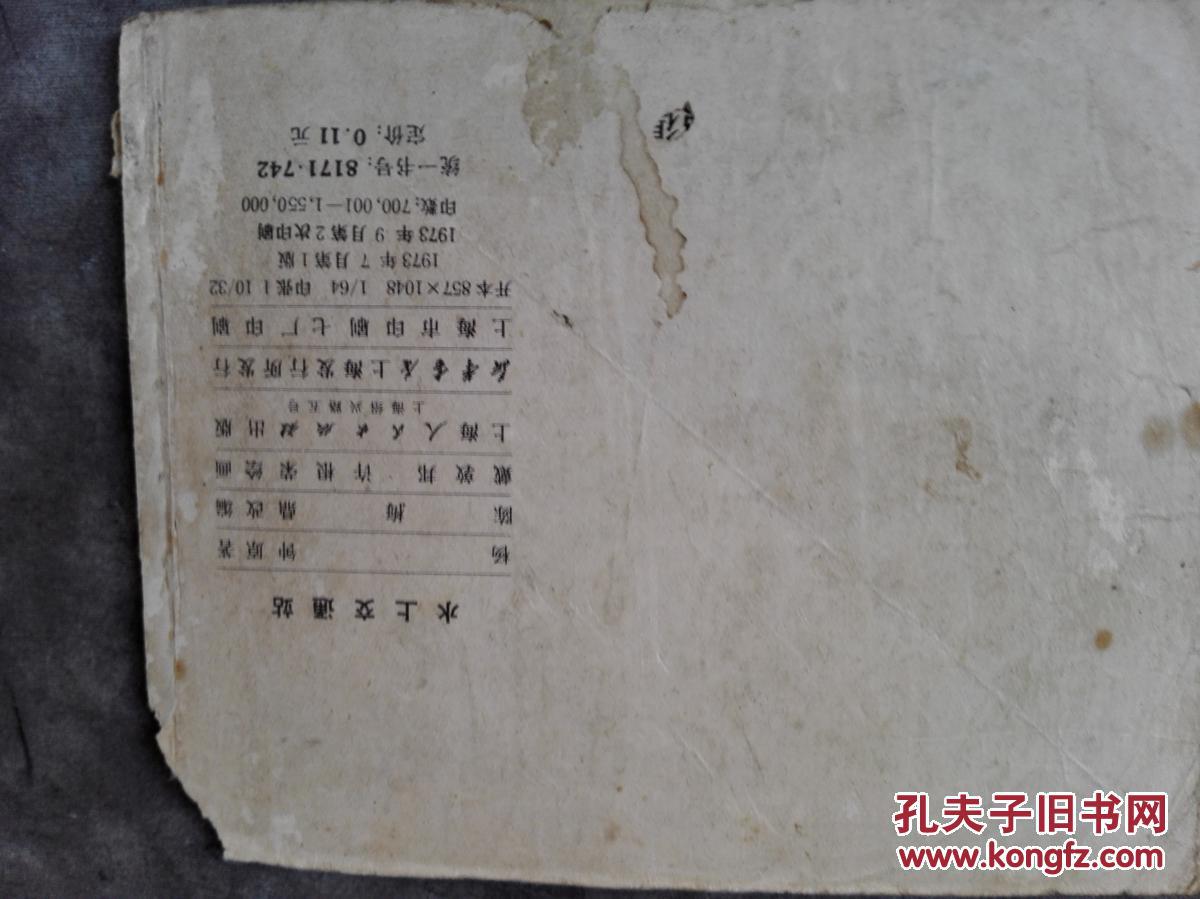 水上交通站
杨 钟 原著
陈 梅 鼎 改编
戴敦邦 许根荣 绘画
上海人民出版社出版
上海绍兴路五号
新华书店上海发行所发行
上海市印刷七厂印刷
开本 857×1048 1/64 印张 1 10/32
1973年 7 月第1版
1973年 9 月第2次印刷
印数：700,001—1,550,000
统一书号：8171·742
定价：0.11元
孔夫子旧书网
www.kongfz.com